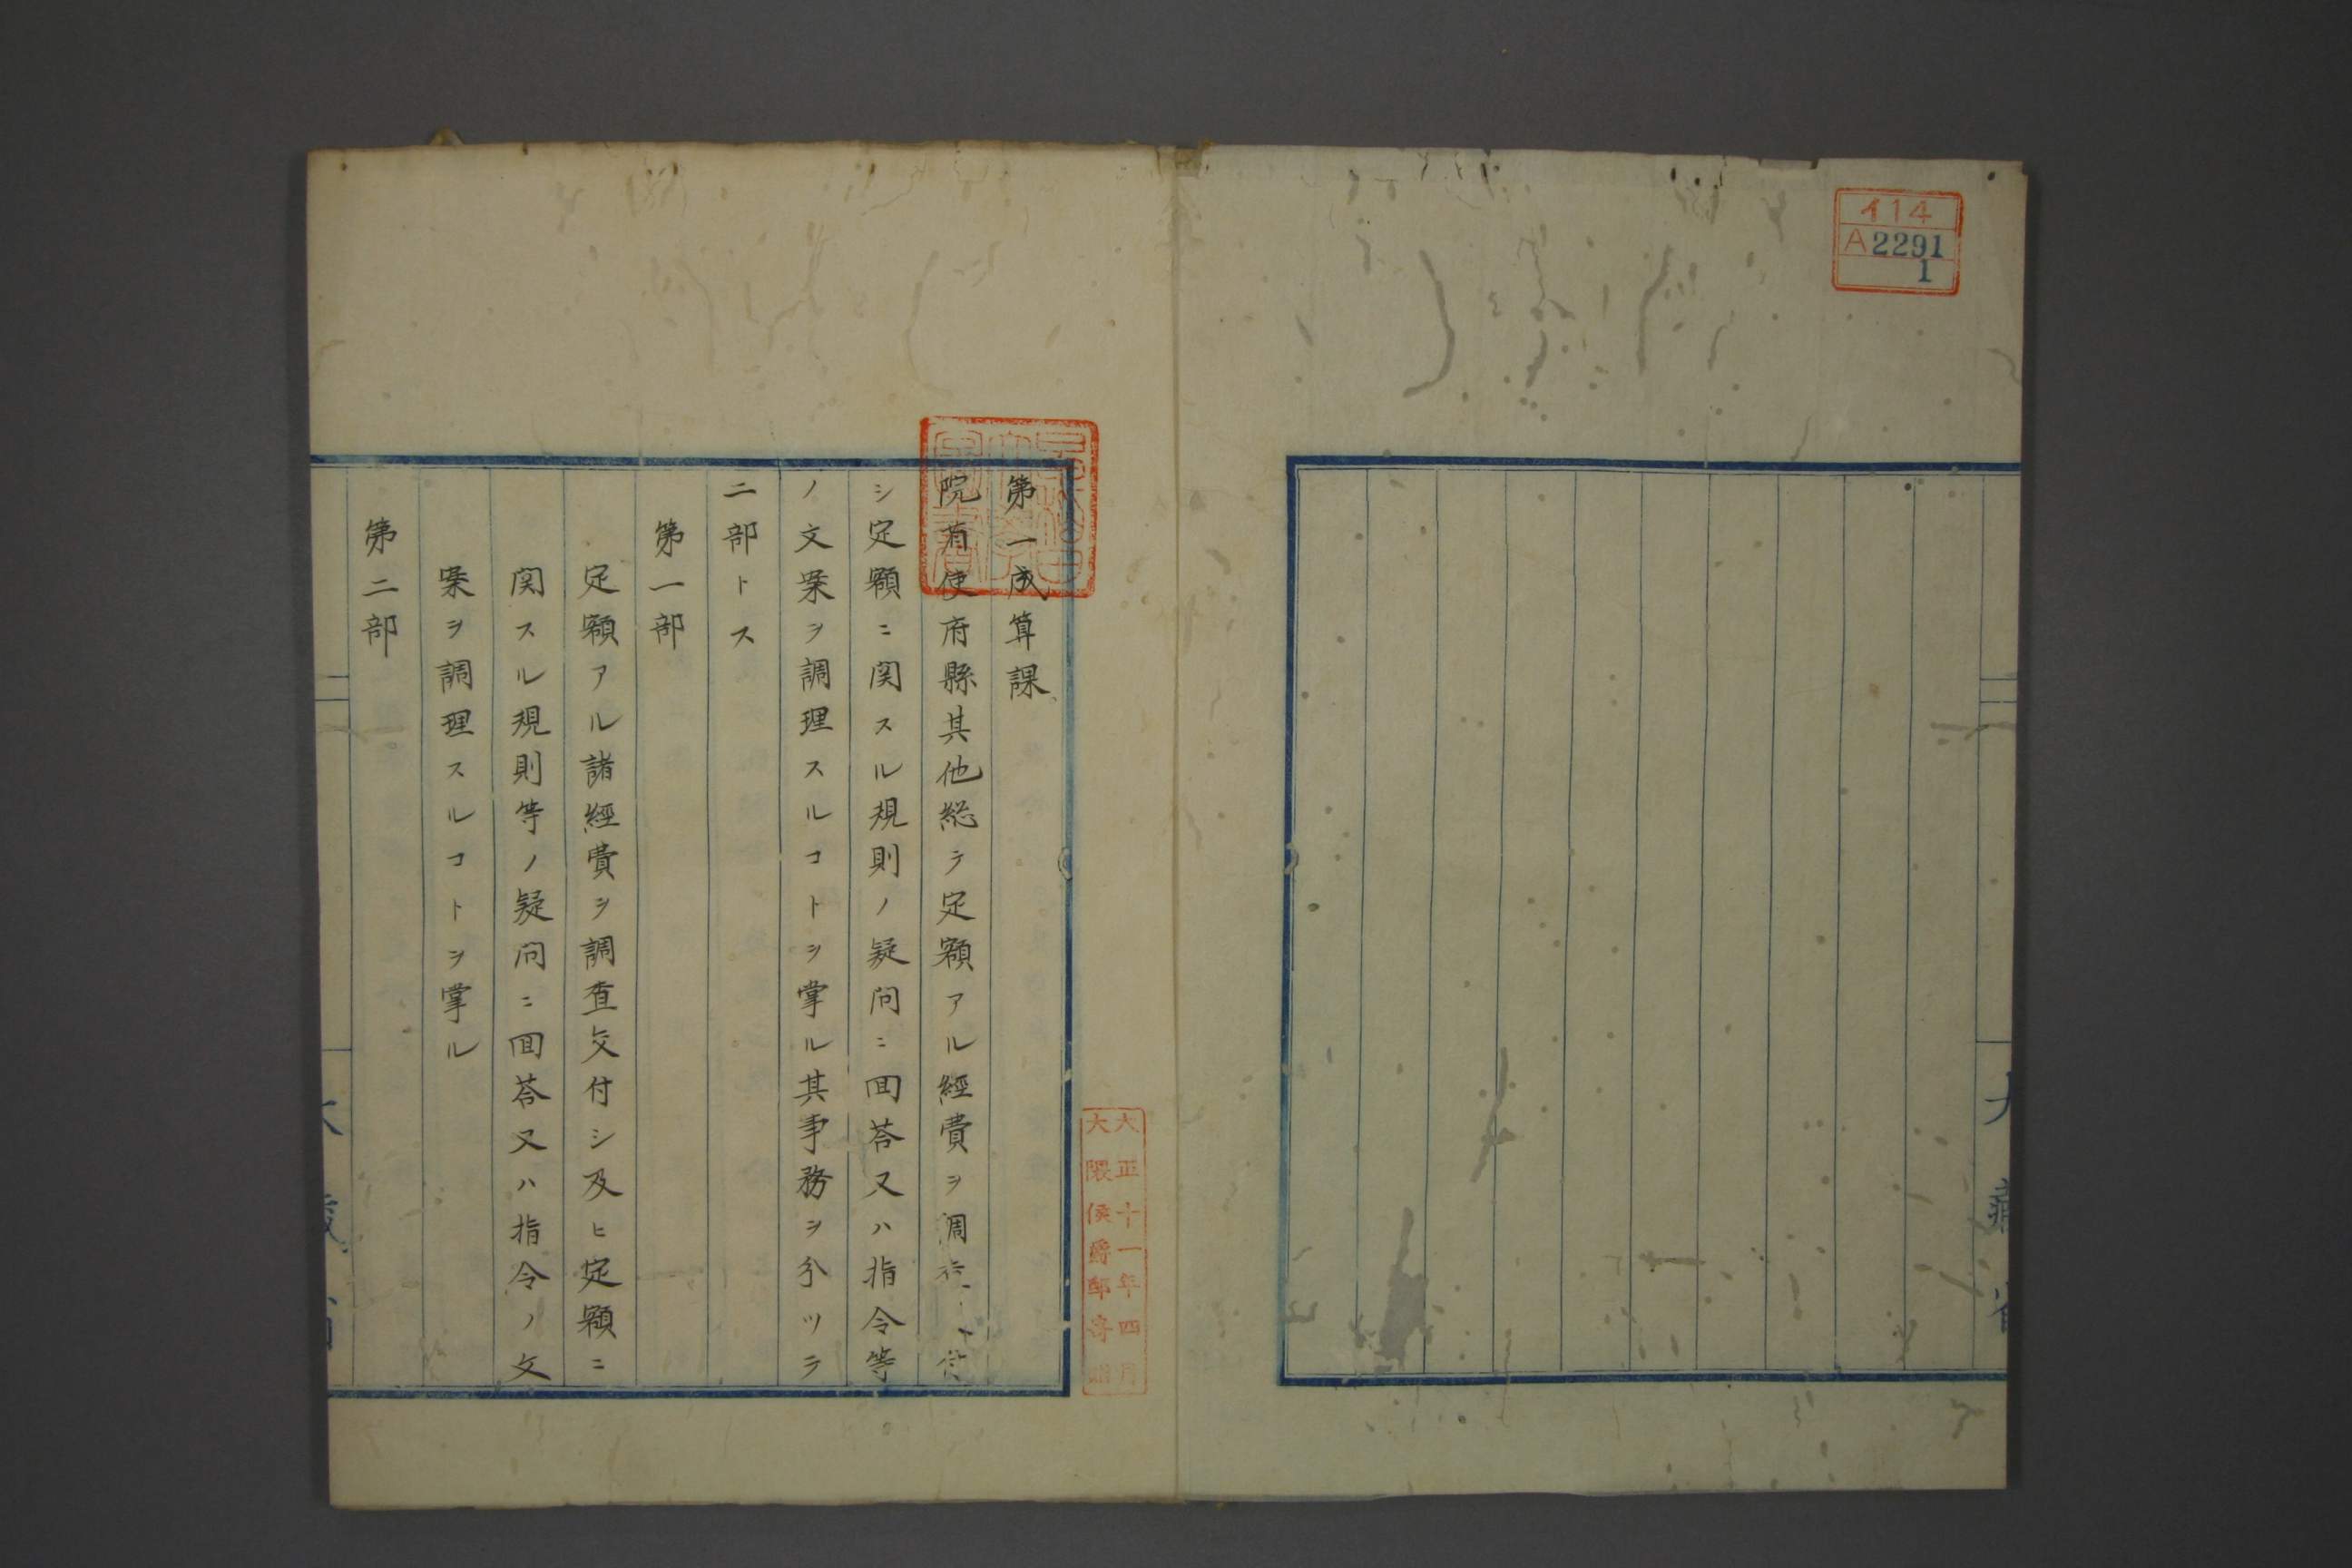 イ14
A2291
1
大藏省
大正十一年四月
大隈侯爵邸寄贈
第一成算課
院省使府縣其他総テ定額アル經費ヲ調査交付
シ定額ニ関スル規則ノ疑问ニ回荅又ハ指令等
ノ文案ヲ調理スルコトヲ掌ル其事務ヲ分ツテ
二部トス
第一部
定額アル諸經費ヲ調査交付シ及ヒ定額ニ
関スル規則等ノ疑问ニ回荅又ハ指令ノ文
案ヲ調理スルコトヲ掌ル
第二部